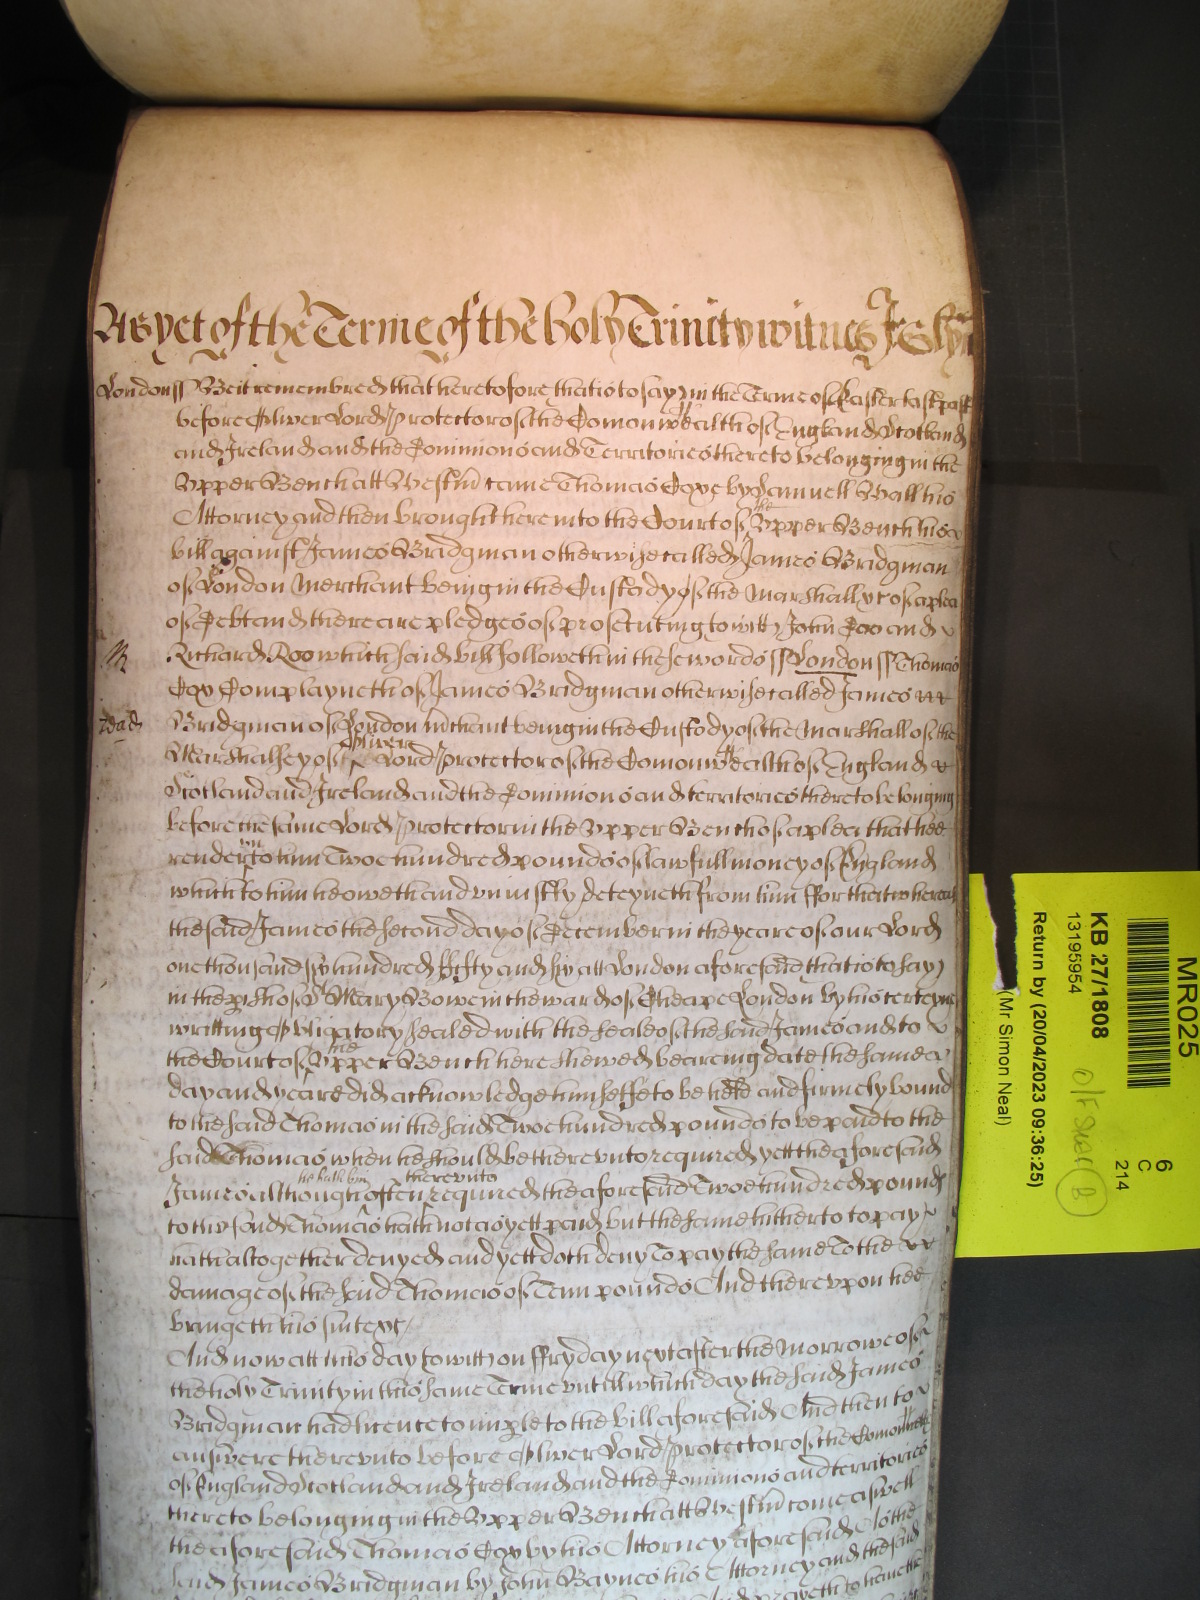 As yet of the Terme of the holy Trinity witnes
London ss Be it remembred that heretofore that is to say in the Terme of Easter last past
before Oliver Lord Protector of the Comonwealth of England Scotland
and Ireland and the Dominions and Territories thereto belonging in the
Upper Bench att Westm came Thomas Coxe by Samuell Wall his
Attorney and then brought here into the Court of the Upper Bench his
bill against James Bridgman otherwise called James Bridgman
of London Merchant being in the Custody of the Marshall &c of a plea
of Debt and there are pledges of prosecuting to witt John Doo and
Richard Roo which said bill followeth in these words ss London ss Thomas
Cox Complayneth of James Bridgman otherwise called James
Bridgman of London mchant being in the Custody of the Marshall of the
Marshalsey of Oliver Lord Protector of the Comonwealth of England
Scotland and Ireland and the Dominions and territories thereto belonging
before the same Lord Protector in the Upper Bench of a plea that hee
render unto him Twoe hundred pounds of lawfull money of England
which to him he oweth and uniustly deteyneth from him ffor that whereas
the said James the second day of December in the yeare of our Lord
one thousand six hundred fifty and six att London aforesaid that is to say
in the pish of St Mary Bowe in the ward of Cheape London by his certeyne
writting Obligatory sealed with the seale of the said James and to
the Court of the Upper Bench here shewed beareing date the same
day and yeare did acknowledge himselfe to be held and firmely bound
to the said Thomas in the said Twoe hundred pounds to be paid to the
said Thomas when he should be thereunto required yett the aforesaid
James although he hath bin often thereunto required the aforesaid Twoe hundred pounds
to the said Thomas hath not as yett paid but the same hitherto to pay
hath altogether denyed and yett doth deny To pay the same To the
damage of the said Thomas of Tenn pounds And thereupon hee
bringeth his suite &c
And now att this day to witt on ffryday next after the Morrowe of
the holy Trinity in this same Terme untill which day the said James
Bridgman had licence to imple to the bill aforesaid And then to
answere thereunto before Oliver Lord Protector of the Comonwealth
of England Scotland and Ireland and the Dominions and territories
thereto belonging in the Upper Bench att Westm come aswell
the aforesaid Thomas Cox by his Attorney aforesaid As the
said James Bridgman by John Baynes his Attorney and the said
MR025
6
C
214
KB 27/1808
13195954
Return by (20/04/2023 09:36:25)
(Mr Simon Neal)